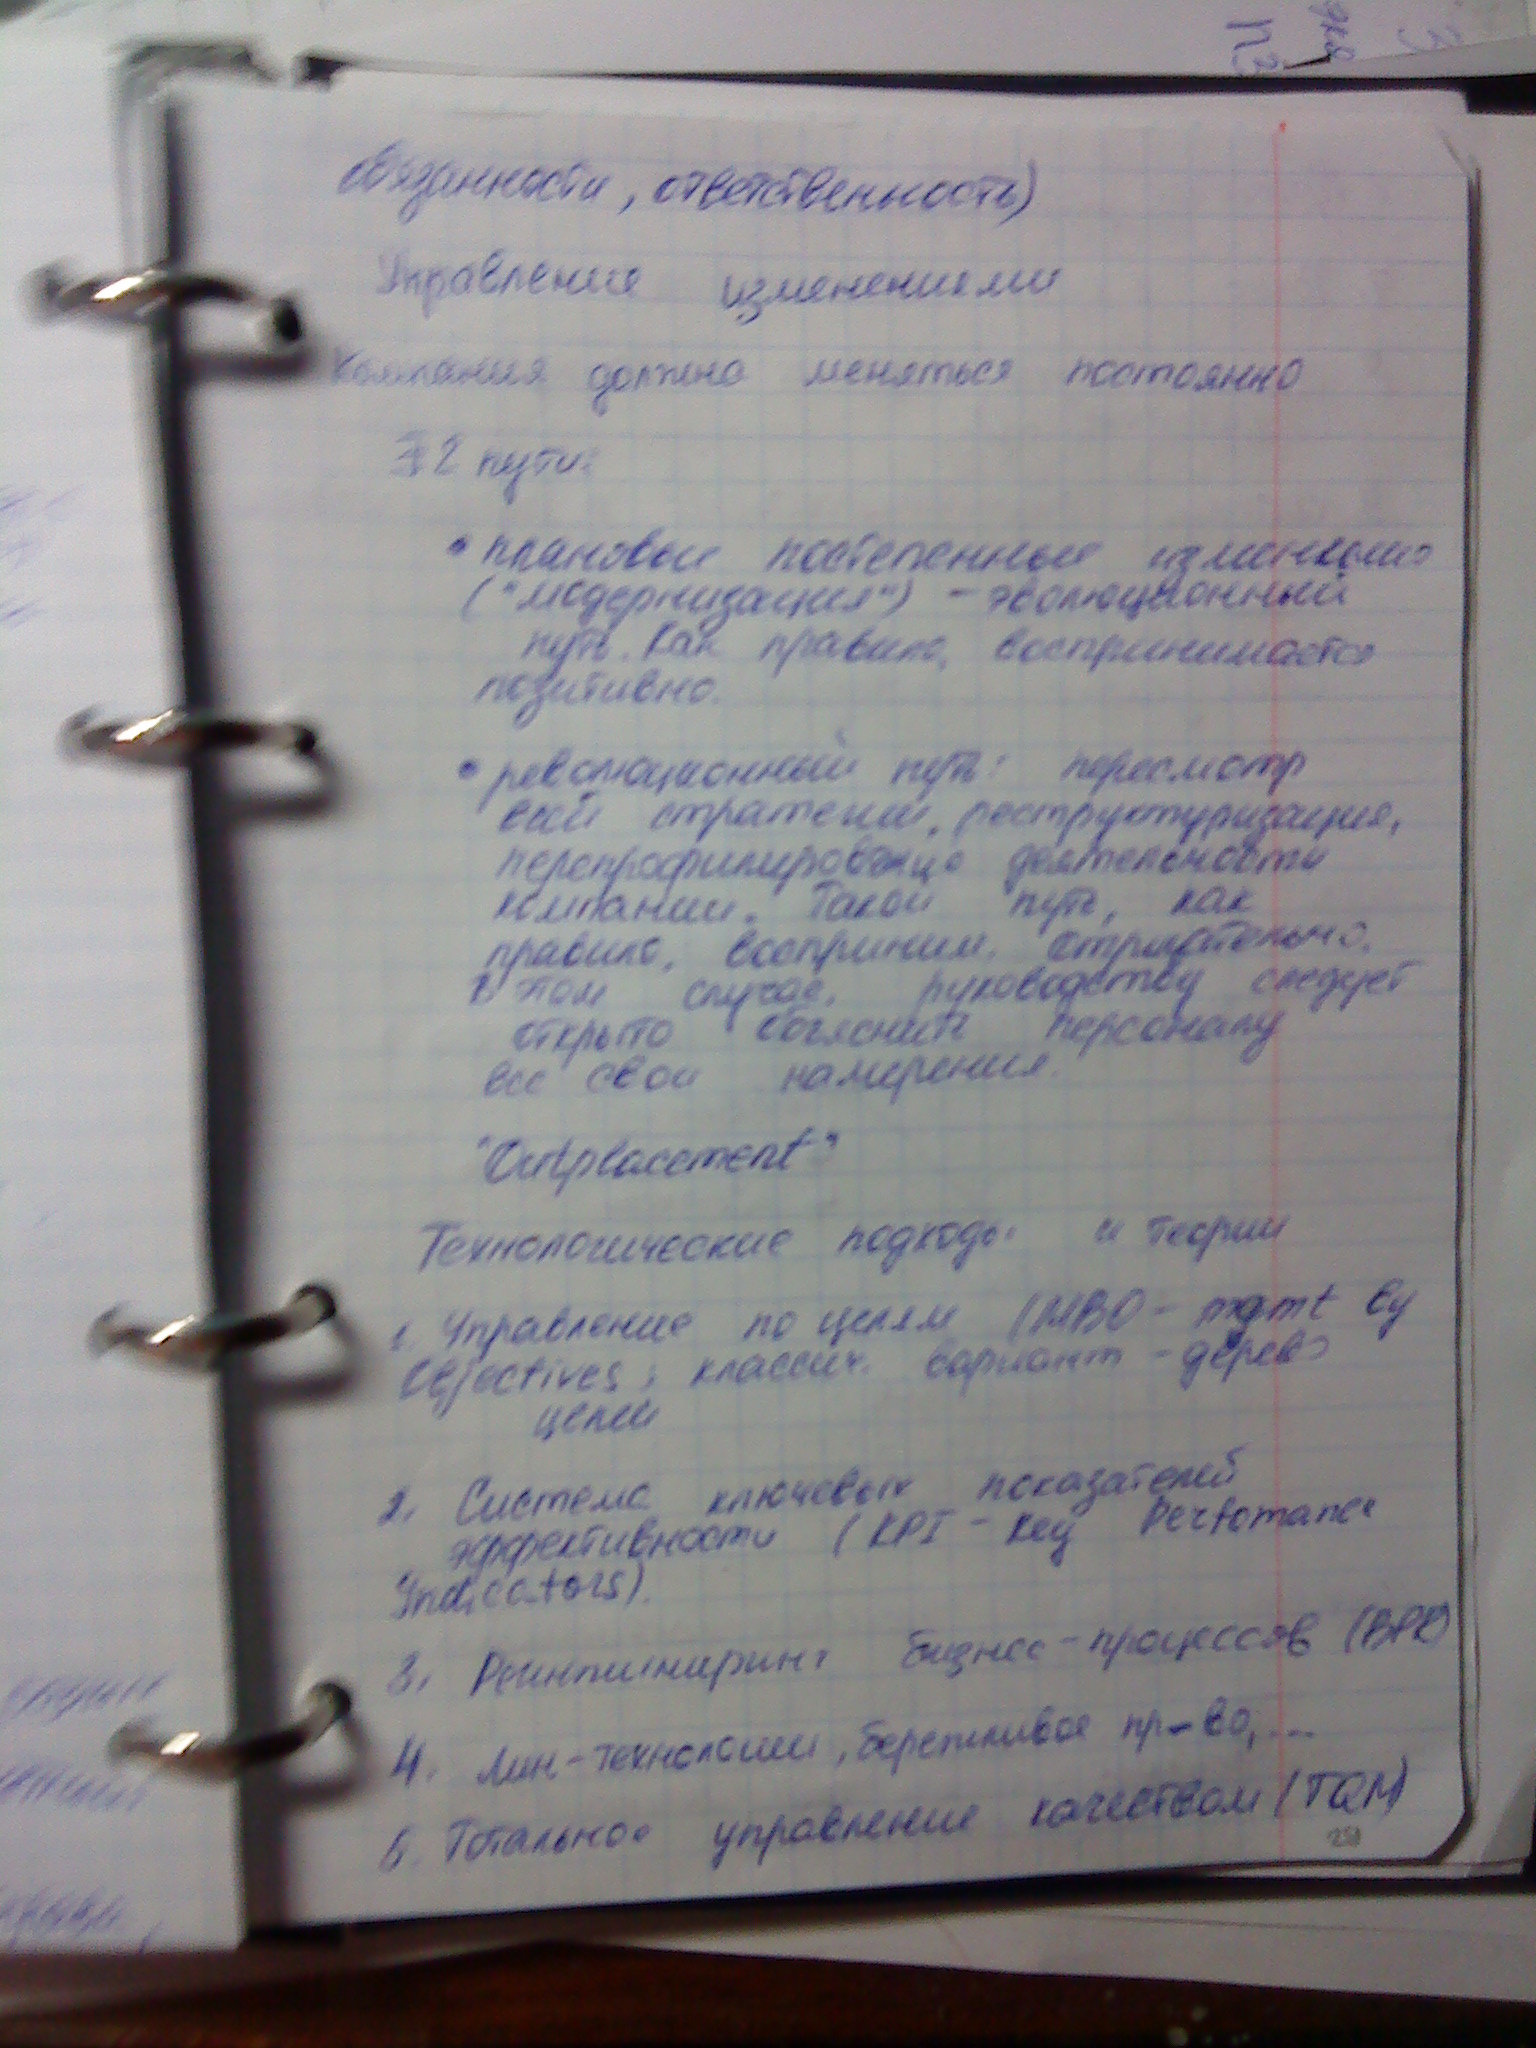 обязанности, ответственность)
Управление изменениями
Компания должна меняться постоянно
∃ 2 пути:
• плановые постепенные изменения
("модернизация") - эволюционный
путь. Как правило, воспринимается
позитивно.
• революционный путь: пересмотр
всей стратегии, реструктуризация,
перепрофилирование деятельности
компании. Такой путь, как
правило, восприним. отрицательно.
В этом случае, руководству следует
открыто объяснить персоналу
все свои намерения.
"Outplacement"
Технологические подходы и теории
1. Управление по целям (MBO - mgmt by
Objectives; классич. вариант - дерево
целей
2. Система ключевых показателей
эффективности (KPI - Key Perfomance
Indicators).
3. Реинжиниринг бизнес-процессов (BPR)
4. Лин-технологии, бережливое пр-во, ...
5. Тотальное управление качеством (TQM)